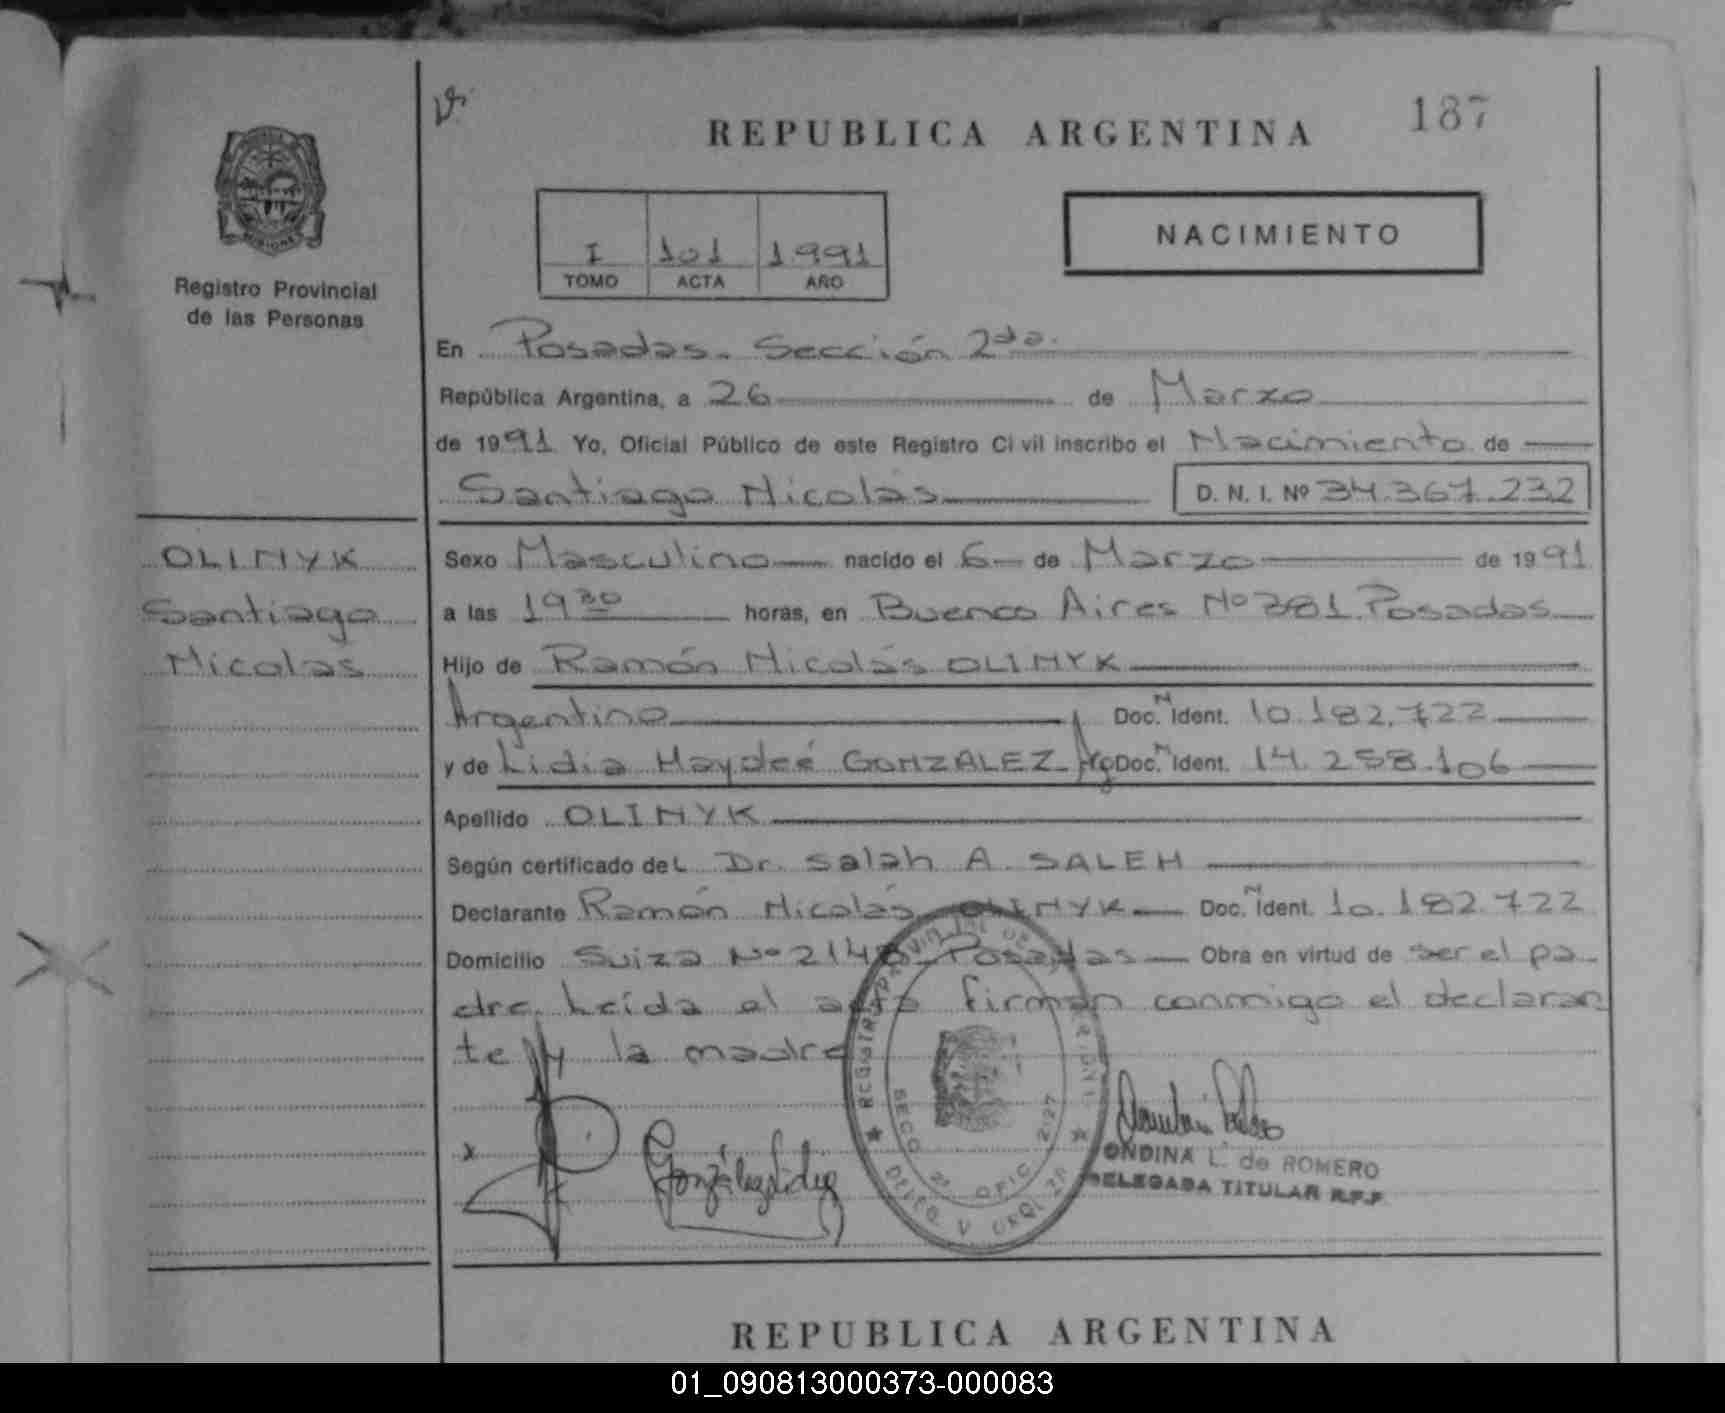 187
REPUBLICA ARGENTINA
NACIMIENTO
I 101 1991
TOMO ACTA AÑO
Registro Provincial
de las Personas
En Posadas. Sección 2da.
República Argentina, a 26 de Marzo
de 1991 Yo, Oficial Público de este Registro Civil inscribo el Nacimiento de
Santiago Nicolás D. N. I. Nº 34.367.232
OLINYK
Santiago
Nicolás
Sexo Masculino nacido el 6 de Marzo de 1991
a las 19 30 horas, en Buenos Aires Nº 381 Posadas
Hijo de Ramón Nicolás OLINYK
Argentino Doc. N Ident. 10.182.722
y de Lidia Haydeé GONZALEZ Arg Doc. N Ident. 14.258.106
Apellido OLINYK
Según certificado del Dr. Salah A. SALEH
Declarante Ramón Nicolás OLINYK Doc. N Ident. 10.182.722
Domicilio Suiza Nº 2148 Posadas Obra en virtud de ser el pa-
dre. Leída el acta firman conmigo el declaran
te y la madre
x
González Lidia
ONDINA L. de ROMERO
DELEGADA TITULAR R.P.P.
REPUBLICA ARGENTINA
01_090813000373-000083